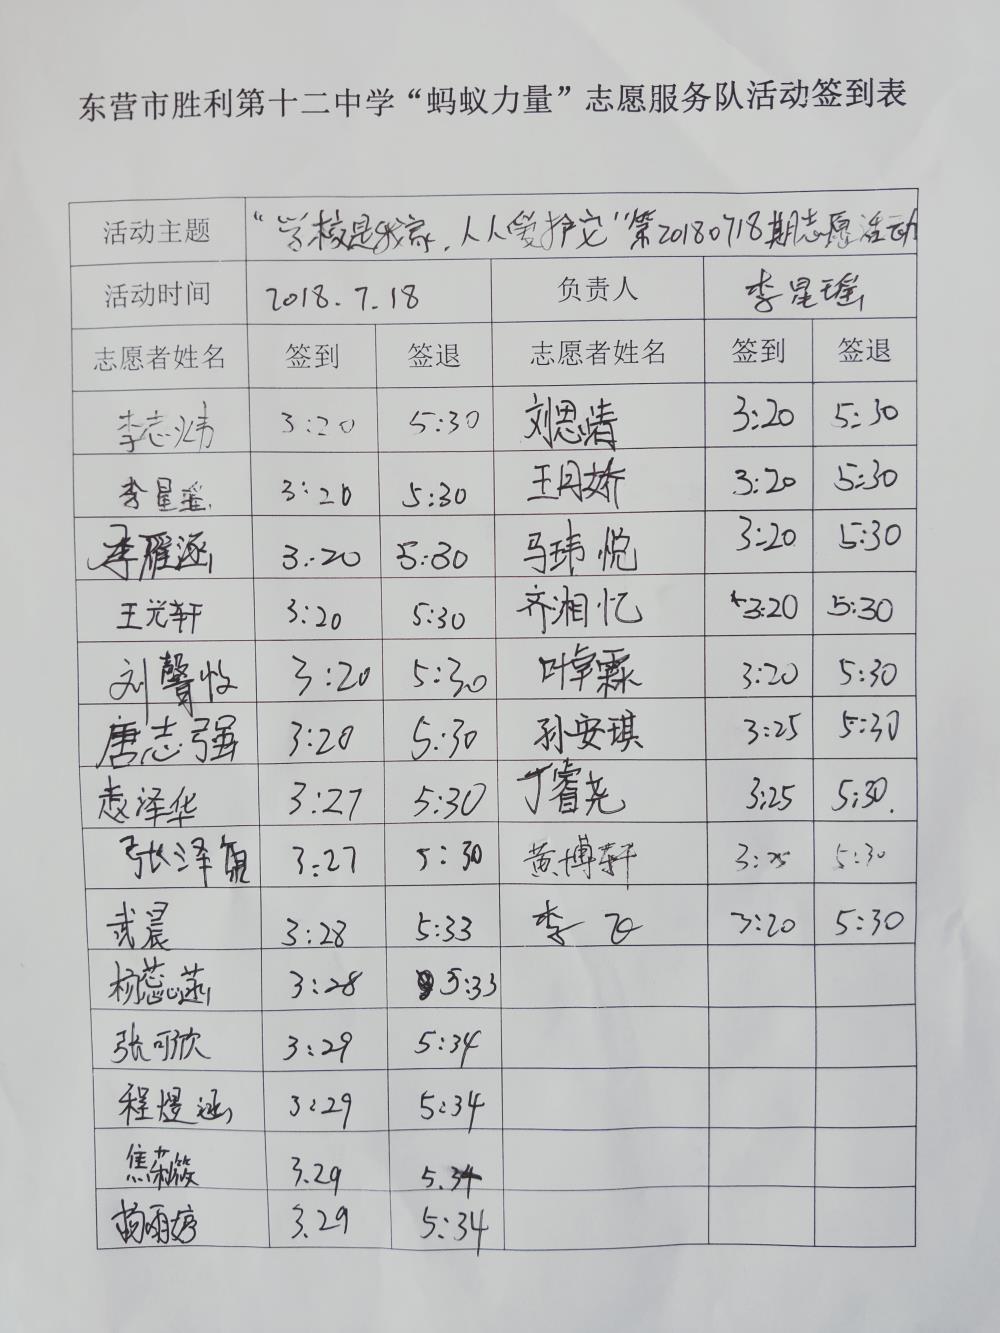 东营市胜利第十二中学“蚂蚁力量”志愿服务队活动签到表
活动主题 “学校是我家，人人爱护它”第20180718期志愿活动
活动时间 2018.7.18 负责人 李星瑶
志愿者姓名 签到 签退 志愿者姓名 签到 签退
李志炜 3:20 5:30 刘思清 3:20 5:30
李星瑶 3:20 5:30 王丹娇 3:20 5:30
李雁涵 3:20 5:30 马玮悦 3:20 5:30
王光轩 3:20 5:30 齐湘忆 3:20 5:30
刘馨忆 3:20 5:30 叶卓霖 3:20 5:30
唐志强 3:20 5:30 孙安琪 3:25 5:30
赵泽华 3:27 5:30 丁睿尧 3:25 5:30.
张泽 3:27 5:30 黄博轩 3:25 5:30
武晨 3:28 5:33 李飞 3:20 5:30
杨蕊菡 3:28 5:33
张可欣 3:29 5:34
程煜涵 3:29 5:34
焦筱 3.29 5.34
杨雨婷 3.29 5:34